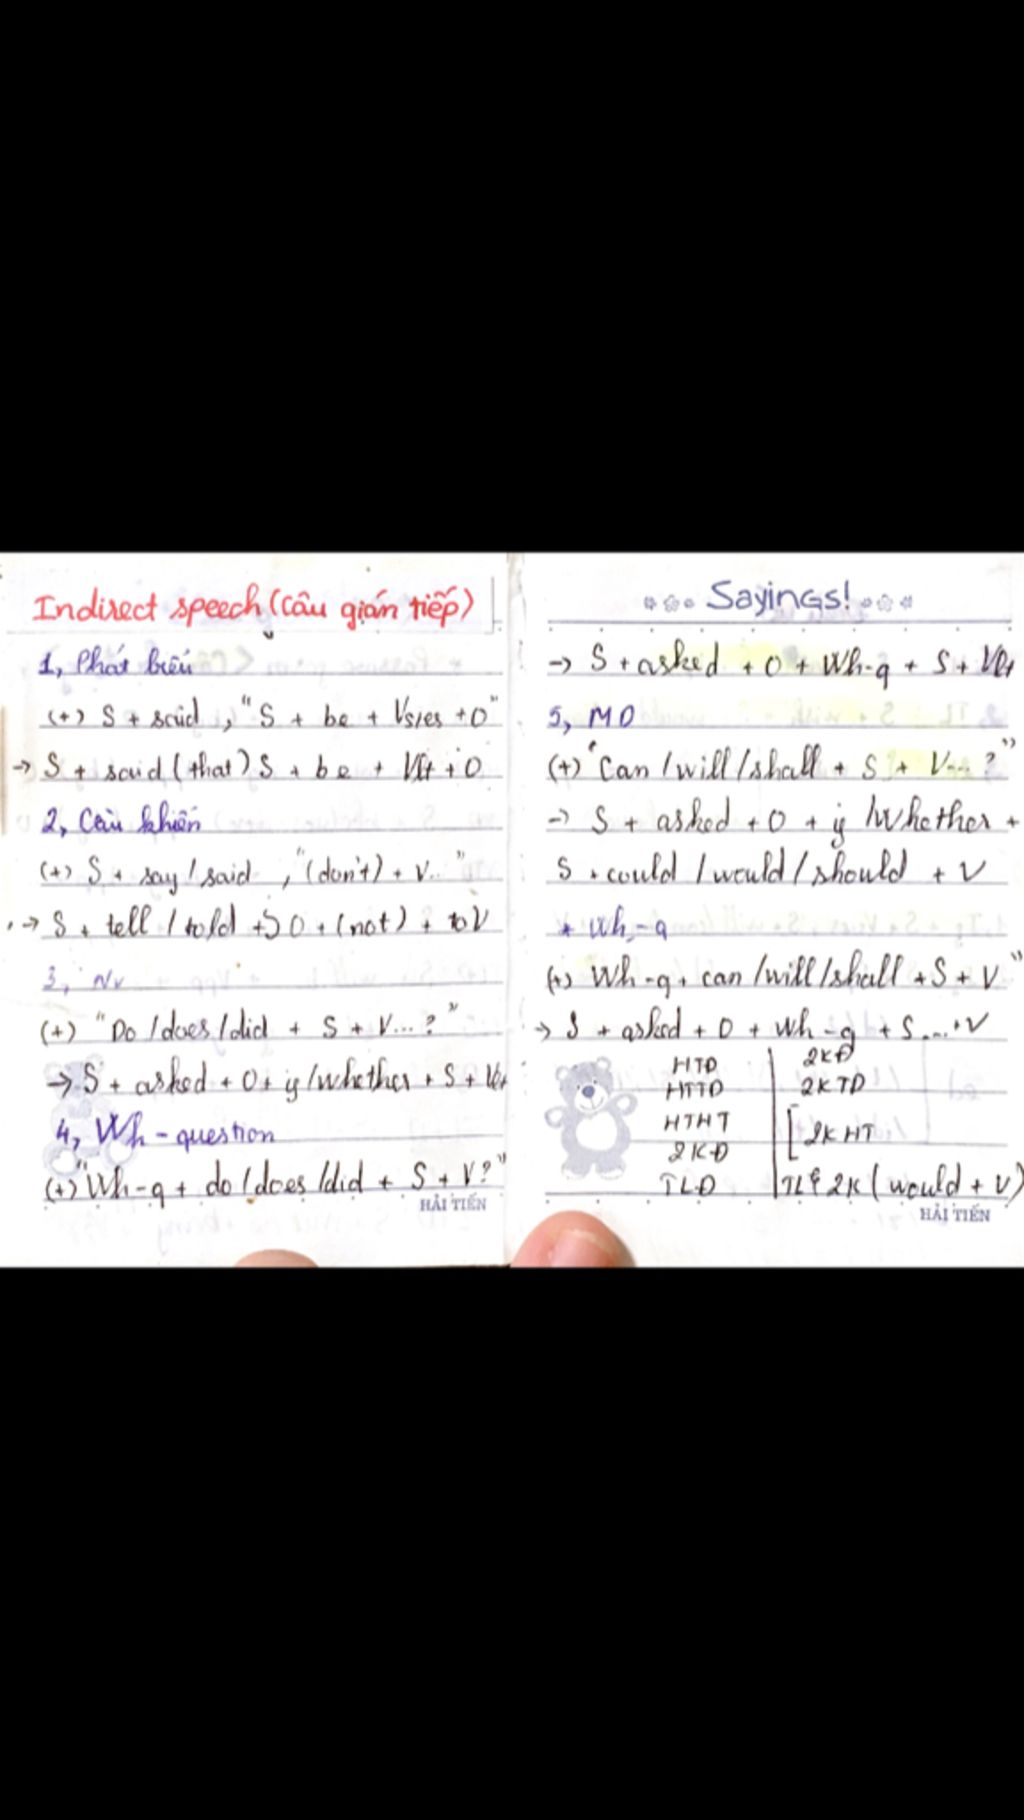 Indirect speech (câu gián tiếp)
1, Phát biểu
(+) S + said , "S + be + Vs/es + O"
→ S + said (that) S + be + Vqt + O
2, Câu khiến
(+) S + say / said , "(don't) + V..."
→ S + tell / told + SO + (not) + to V
3, Nv
(+) "Do / does / did + S + V...?"
→ S + asked + O + if / whether + S + Vqt
4, Wh - question
(+) "Wh-q + do / does / did + S + V?"
HẢI TIẾN
Sayings!
→ S + asked + O + Wh-q + S + Vqt
5, MO
(+) "Can / will / shall + S + V...?"
→ S + asked + O + if / Whether +
S + could / would / should + V
* Wh - q
(+) Wh - q + can / will / shall + S + V"
→ S + asked + O + Wh - q + S....+ V
HTĐ 2KĐ
HTTD 2KTD
HTHT [ 2KHT
2KĐ
TLĐ TL 2K (would + V)
HẢI TIẾN